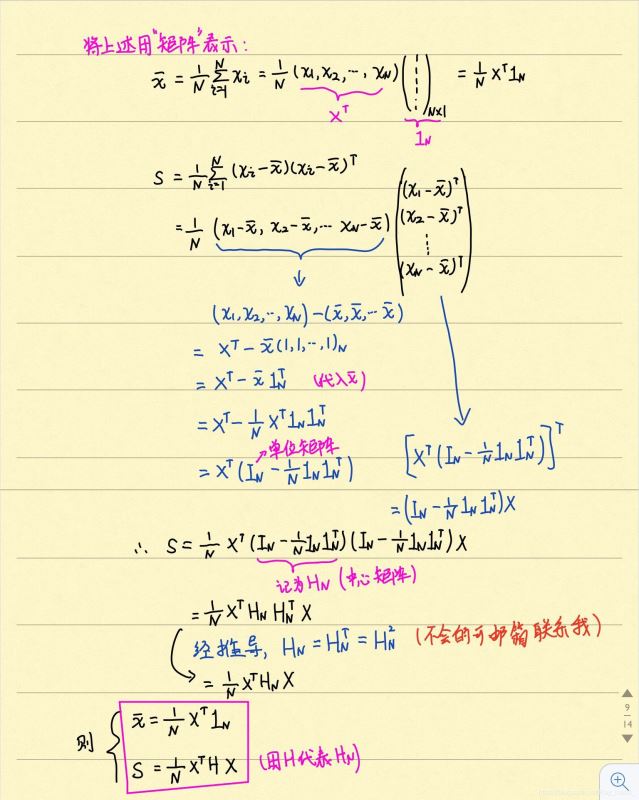 将上述用"矩阵"表示:
x̄ = 1/N ∑_{i=1}^{N} x_i = 1/N (x_1, x_2, ⋯, x_N) ( ⋮ )_{N×1} = 1/N X^T 1_N
X^T
1_N
S = 1/N ∑_{i=1}^{N} (x_i - x̄)(x_i - x̄)^T
= 1/N (x_1 - x̄, x_2 - x̄, ⋯ x_N - x̄)
(x_1 - x̄)^T
(x_2 - x̄)^T
⋮
(x_N - x̄)^T
(x_1, x_2, ⋯, x_N) - (x̄, x̄, ⋯ x̄)
= X^T - x̄(1, 1, ⋯, 1)_N
= X^T - x̄ 1_N^T (代入x̄)
= X^T - 1/N X^T 1_N 1_N^T
单位矩阵
= X^T (I_N - 1/N 1_N 1_N^T)
[X^T (I_N - 1/N 1_N 1_N^T)]^T
= (I_N - 1/N 1_N 1_N^T) X
∴ S = 1/N X^T (I_N - 1/N 1_N 1_N^T)(I_N - 1/N 1_N 1_N^T) X
记为H_N (中心矩阵)
= 1/N X^T H_N H_N^T X
经推导, H_N = H_N^T = H_N^2 (不会的可邮箱联系我)
= 1/N X^T H_N X
则
x̄ = 1/N X^T 1_N
S = 1/N X^T H X (用H代表H_N)
9
14